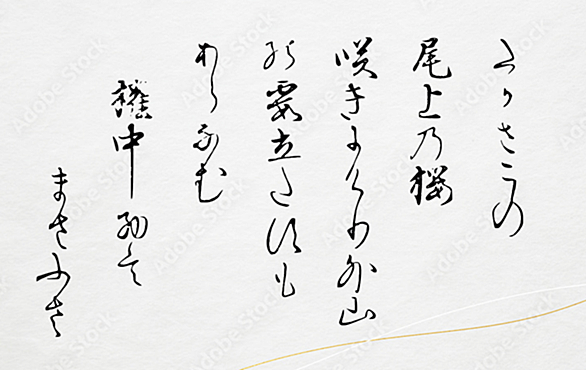 たかさこの
尾上乃桜
咲きにけり外山
の霞立たすも
あらなむ
権中納言
まさふさ